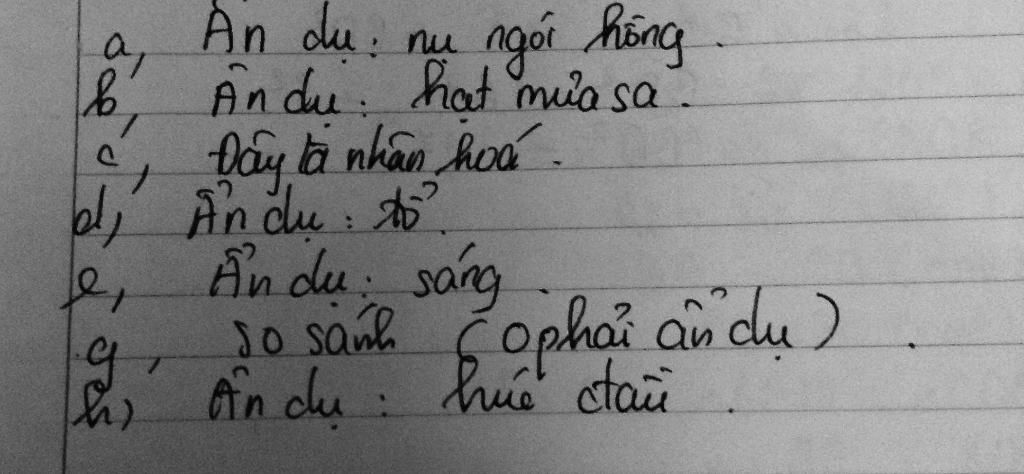 a, Ẩn dụ: nụ ngói hồng.
b, Ẩn dụ: hạt mưa sa.
c, Đây là nhân hoá.
d, Ẩn dụ: đổ.
e, Ẩn dụ: sáng.
g, so sánh (o phải ẩn dụ).
h, Ẩn dụ: